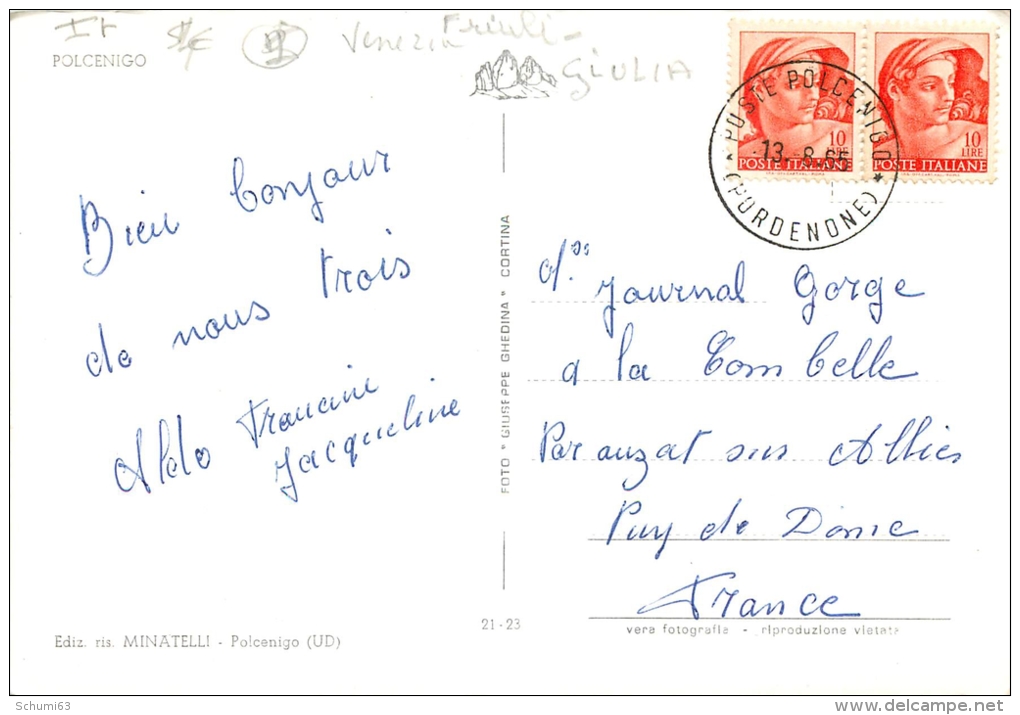 It
Venezia Friuli-
GIULIA
POLCENIGO
10
LIRE
POSTE ITALIANE
10
LIRE
POSTE ITALIANE
POSTE POLCENIGO
13.-8.65
(PORDENONE)
Bien bonjour
de nous trois
Aldo Francine
Jacqueline
FOTO "GIUSEPPE GHEDINA" CORTINA
Journal Gorge
a la Combelle
Par auzat sus Allies
Puy de Dome
France
21-23
vera fotografia - riproduzione vietata
Ediz. ris. MINATELLI - Polcenigo (UD)
Schumi63